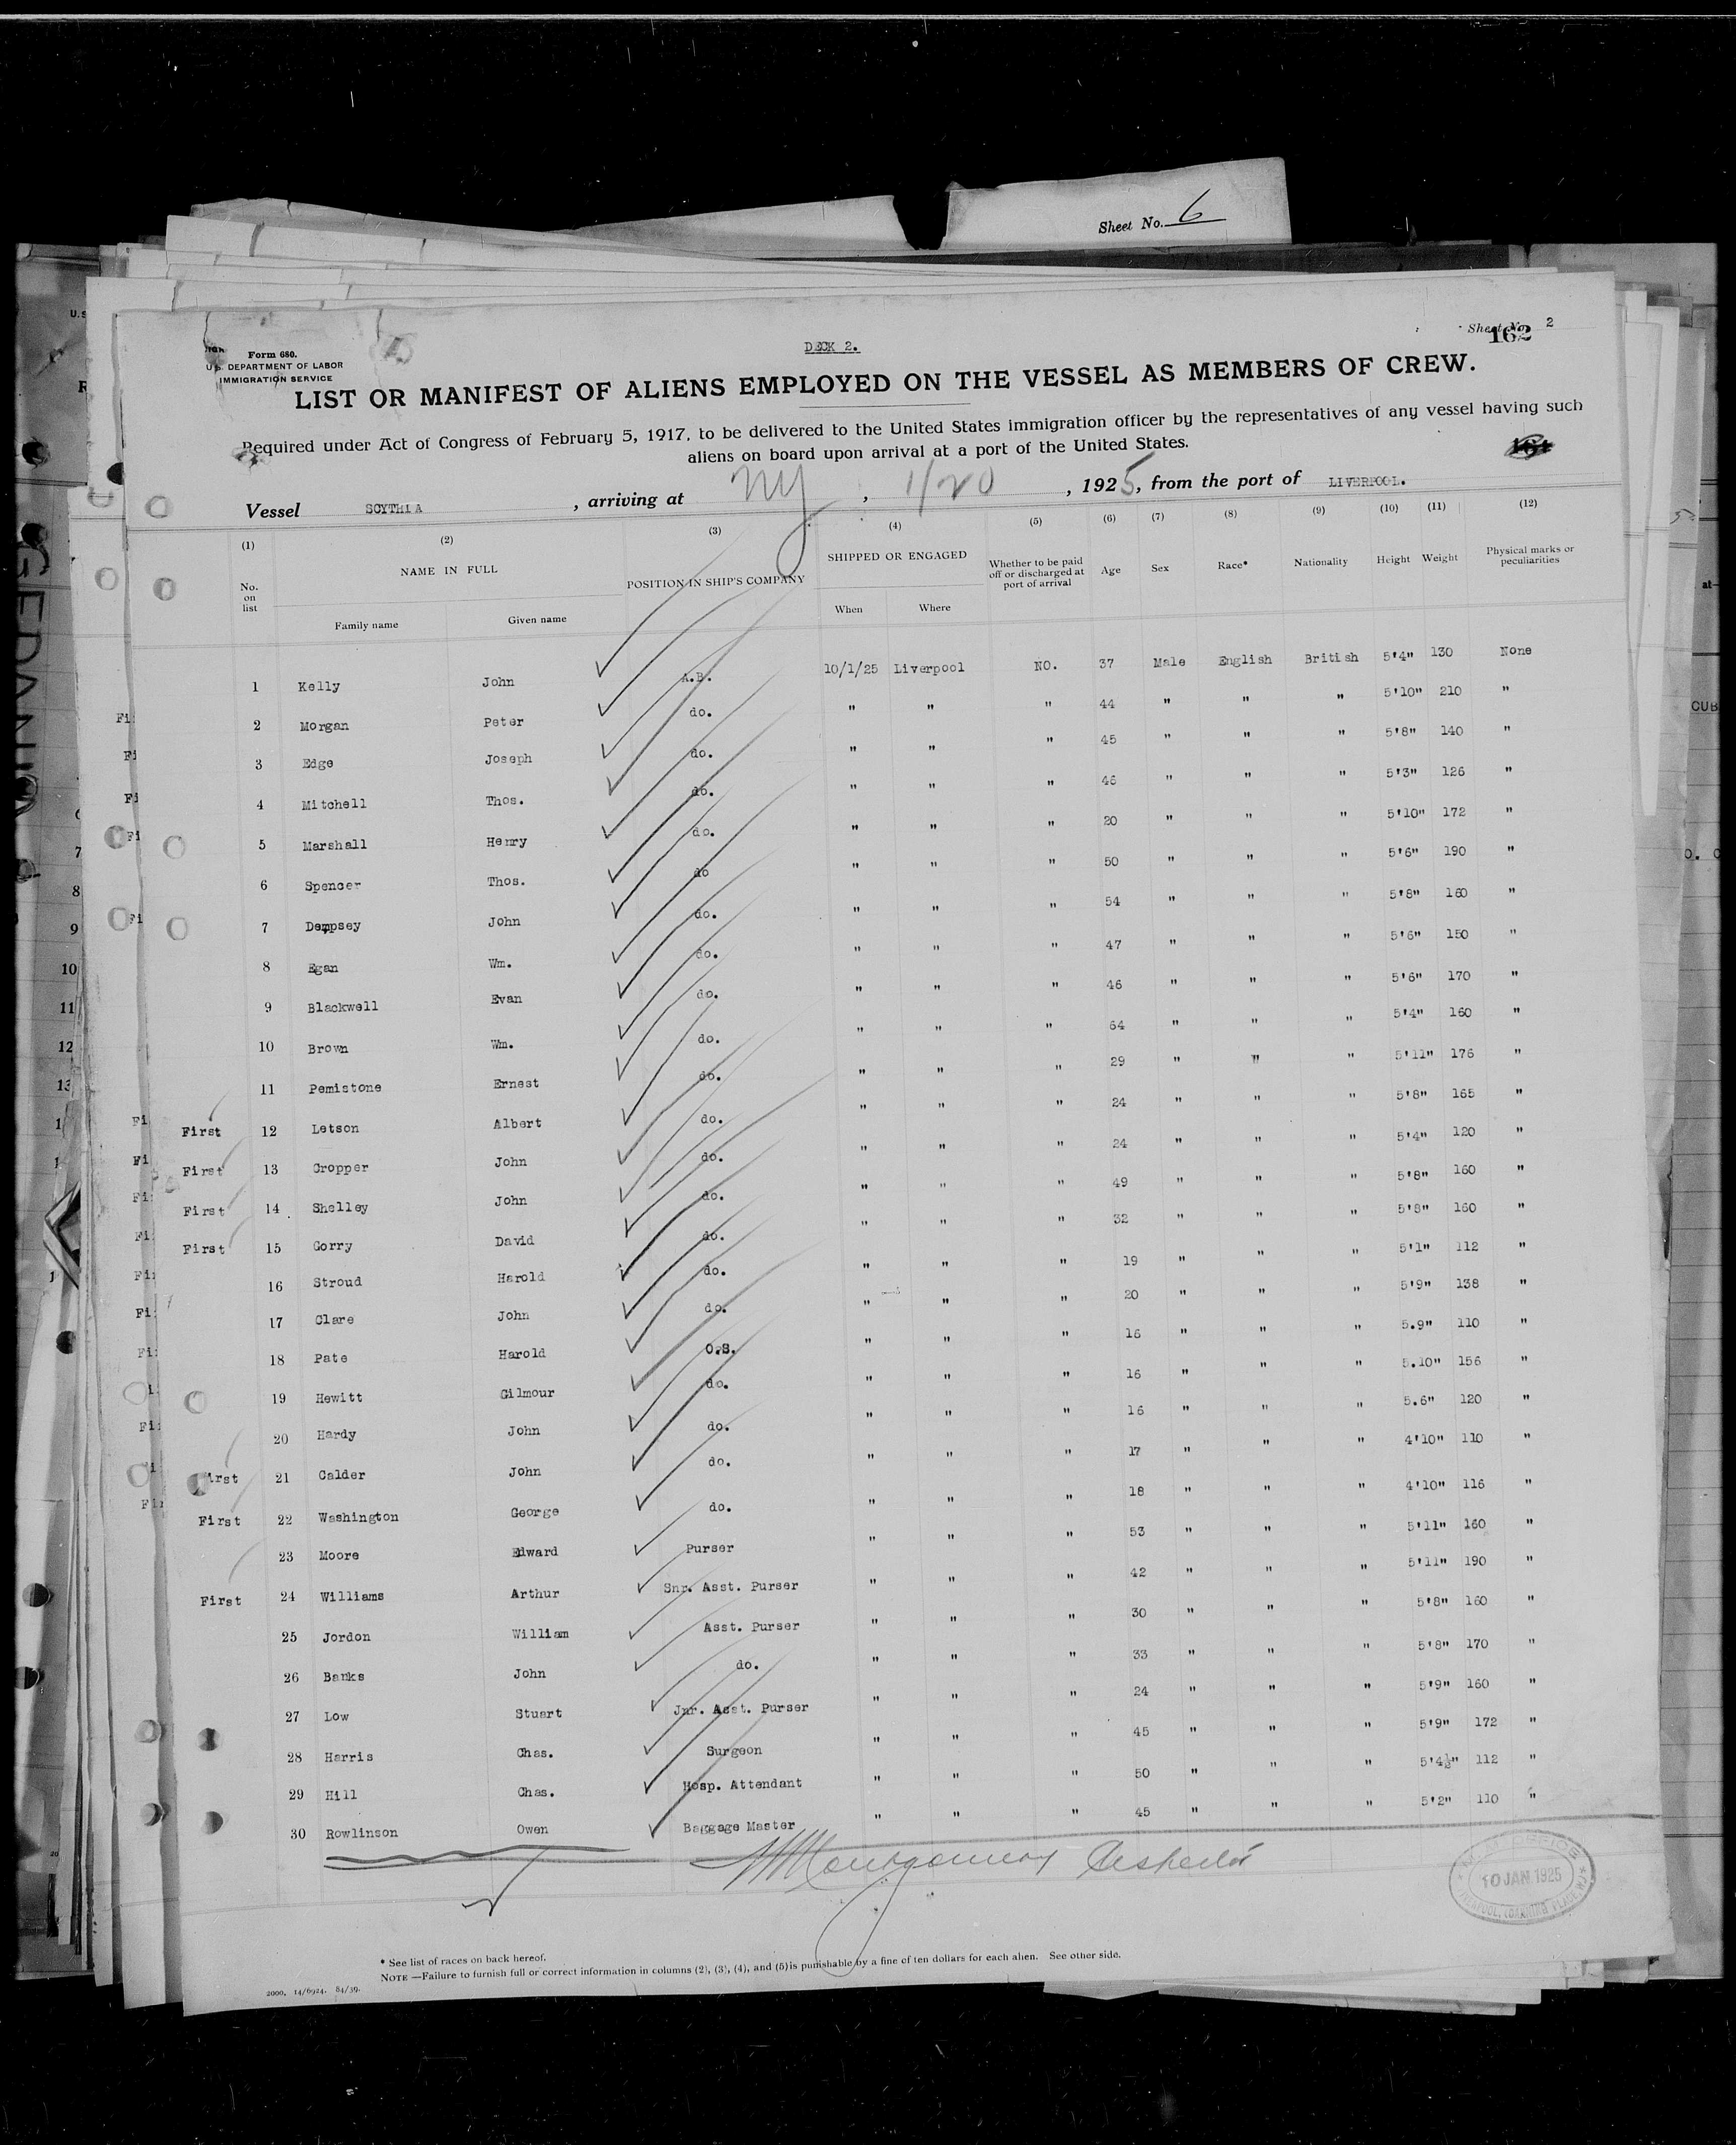 Sheet No. 6
Sheet No. 2
162
DECK 2.
Form 680.
U.S. DEPARTMENT OF LABOR
IMMIGRATION SERVICE
LIST OR MANIFEST OF ALIENS EMPLOYED ON THE VESSEL AS MEMBERS OF CREW.
Required under Act of Congress of February 5, 1917, to be delivered to the United States immigration officer by the representatives of any vessel having such
aliens on board upon arrival at a port of the United States.
Vessel SCYTHIA, arriving at NY, 1/20, 1925, from the port of LIVERPOOL.
(1) (2) (3) (4) (5) (6) (7) (8) (9) (10) (11) (12)
No. on list NAME IN FULL POSITION IN SHIP'S COMPANY SHIPPED OR ENGAGED Whether to be paid off or discharged at port of arrival Age Sex Race* Nationality Height Weight Physical marks or peculiarities
Family name Given name When Where
1 Kelly John A.B. 10/1/25 Liverpool NO. 37 Male English British 5'4" 130 None
2 Morgan Peter do. " " " 44 " " " 5'10" 210 "
3 Edge Joseph do. " " " 45 " " " 5'8" 140 "
4 Mitchell Thos. do. " " " 46 " " " 5'3" 126 "
5 Marshall Henry do. " " " 20 " " " 5'10" 172 "
6 Spencer Thos. do " " " 50 " " " 5'6" 190 "
7 Dempsey John do. " " " 54 " " " 5'8" 160 "
8 Egan Wm. do. " " " 47 " " " 5'6" 150 "
9 Blackwell Evan do. " " " 46 " " " 5'6" 170 "
10 Brown Wm. do. " " " 64 " " " 5'4" 160 "
11 Pemistone Ernest do. " " " 29 " " " 5'11" 176 "
First 12 Letson Albert do. " " " 24 " " " 5'8" 165 "
First 13 Cropper John do. " " " 24 " " " 5'4" 120 "
First 14 Shelley John do. " " " 49 " " " 5'8" 160 "
First 15 Gorry David do. " " " 32 " " " 5'8" 160 "
16 Stroud Harold do. " " " 19 " " " 5'1" 112 "
17 Clare John do. " " " 20 " " " 5'9" 138 "
18 Pate Harold O.S. " " " 16 " " " 5.9" 110 "
19 Hewitt Gilmour do. " " " 16 " " " 5.10" 156 "
20 Hardy John do. " " " 16 " " " 5.6" 120 "
First 21 Calder John do. " " " 17 " " " 4'10" 110 "
First 22 Washington George do. " " " 18 " " " 4'10" 116 "
23 Moore Edward Purser " " " 53 " " " 5'11" 160 "
First 24 Williams Arthur Snr. Asst. Purser " " " 42 " " " 5'11" 190 "
25 Jordon William Asst. Purser " " " 30 " " " 5'8" 160 "
26 Banks John do. " " " 33 " " " 5'8" 170 "
27 Low Stuart Jnr. Asst. Purser " " " 24 " " " 5'9" 160 "
28 Harris Chas. Surgeon " " " 45 " " " 5'9" 172 "
29 Hill Chas. Hosp. Attendant " " " 50 " " " 5'4½" 112 "
30 Rowlinson Owen Baggage Master " " " 45 " " " 5'2" 110 "
Montgomery Inspector
10 JAN 1925
* See list of races on back hereof.
NOTE—Failure to furnish full or correct information in columns (2), (3), (4), and (5) is punishable by a fine of ten dollars for each alien. See other side.
2000, 14/6924. 84/39.